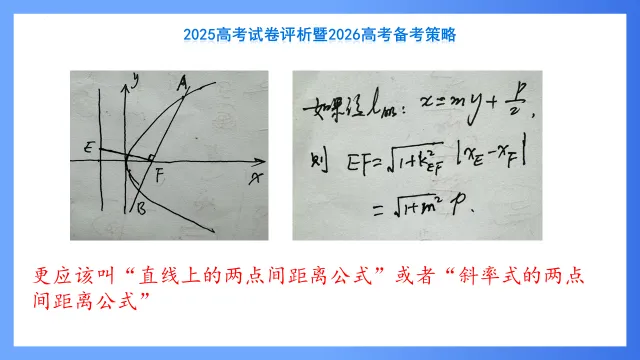 2025高考试卷评析暨2026高考备考策略
y
A
E
F
x
B
如果设 l_AB: x=my+p/2,
则 EF=√(1+k²_EF) |x_E-x_F|
=√(1+m²) p.
更应该叫“直线上的两点间距离公式”或者“斜率式的两点
间距离公式”